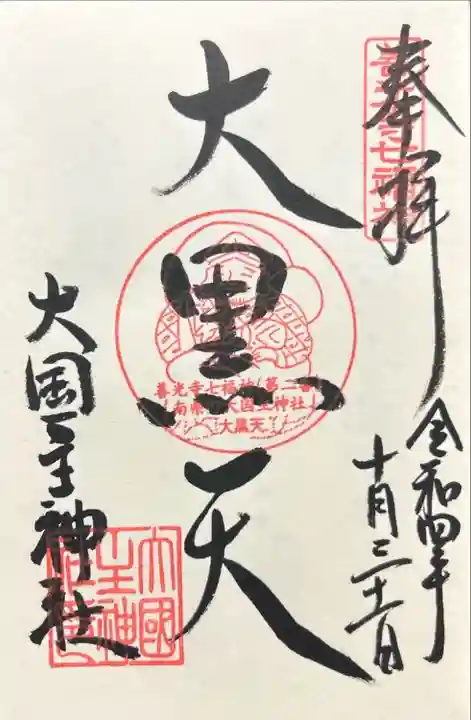 奉拝
善光寺七福神
令和四年
十月三十一日
大黒天
善光寺七福神 第二番
南県町大国主神社
大黒天
大国主神社
大國
主神
社